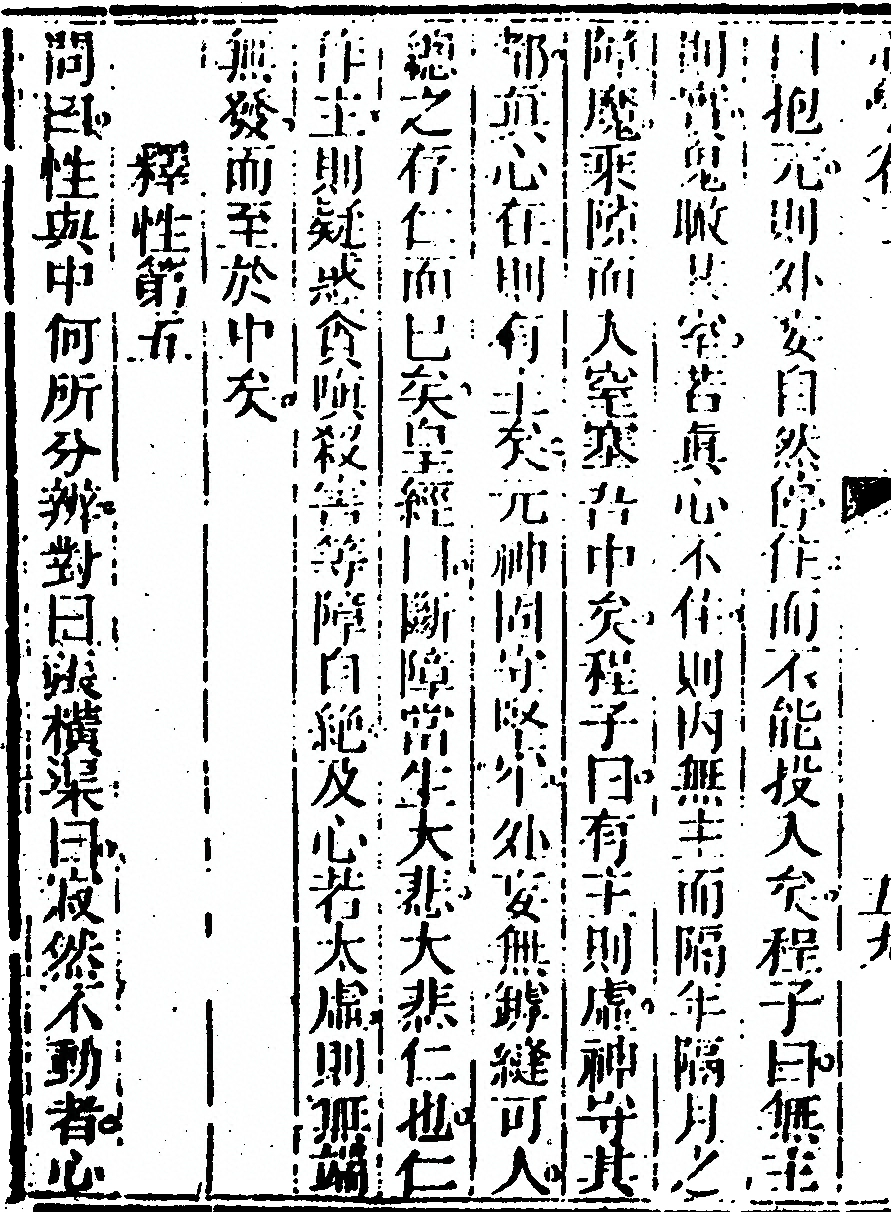 曰抱元則外妄自然停住而不能投入矣程子曰無主
則實鬼瞰其室若真心不住則內無主而隔年隔月之
障魔乘隙而入窒塞吾中矣程子曰有主則虛神守其
都真心在則有主矣元神固守堅牢外妄無罅縫可入
總之存仁而已矣皇經曰斷障當生大悲大悲仁也仁
作主則疑惑貪嗔殺害等障自絕及心若太虛則無端
無發而至於中矣
釋性節五
問曰性與中何所分辨對曰張橫渠曰寂然不動者心